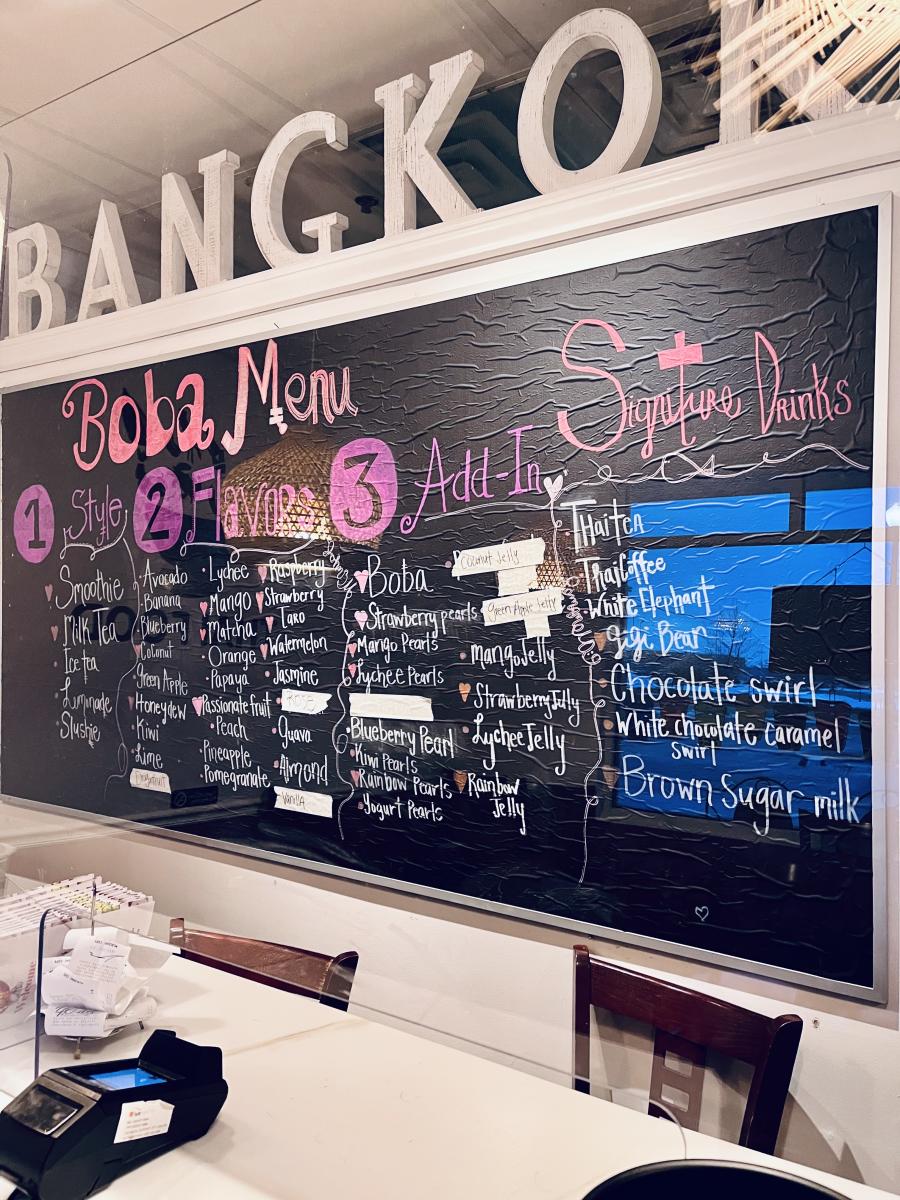 BANGKOK
Boba Menu
1 Style
Smoothie
Milk Tea
Ice tea
Lumonade
Slushie
2 Flavors
Avocado
Banana
Blueberry
Coconut
Green Apple
Honeydew
Kiwi
Lime
Lychee
Mango
Matcha
Orange
Papaya
Passionate fruit
Peach
Pineapple
Pomegranate
Raspberry
Strawberry
Taro
Watermelon
Jasmine
Rose
Guava
Almond
Vanilla
3 Add-In
Boba
Strawberry pearls
Mango Pearls
Lychee Pearls
Blueberry Pearl
Kiwi Pearls
Rainbow Pearls
Yogurt Pearls
Coconut Jelly
Green Apple Jelly
mango Jelly
Strawberry Jelly
Lychee Jelly
Rainbow
Jelly
Signature Drinks
THai tea
Thai Coffee
White Elephant
Gigi Bean
Chocolate swirl
White chocolate caramel
swirl
Brown Sugar milk